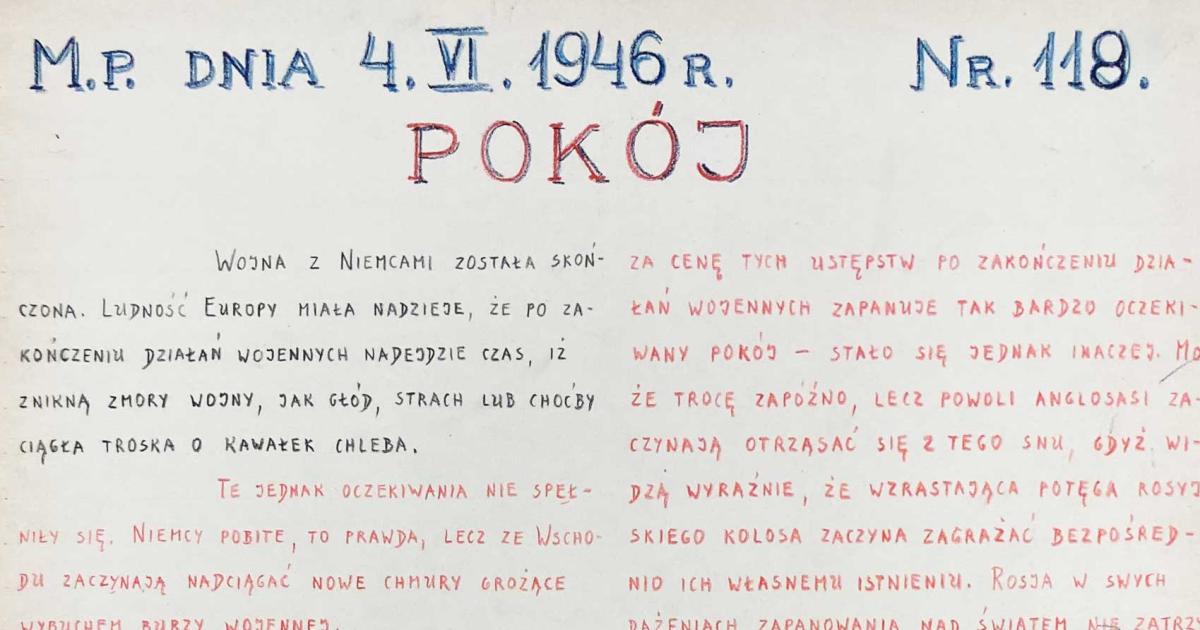 M.P. DNIA 4.VI.1946 R.
NR. 118.
POKÓJ
WOJNA Z NIEMCAMI ZOSTAŁA SKOŃ-
CZONA. LUDNOŚĆ EUROPY MIAŁA NADZIEJE, ŻE PO ZA-
KOŃCZENIU DZIAŁAŃ WOJENNYCH NADEJDZIE CZAS, IŻ
ZNIKNĄ ZMORY WOJNY, JAK GŁÓD, STRACH LUB CHOĆBY
CIĄGŁA TROSKA O KAWAŁEK CHLEBA.
TE JEDNAK OCZEKIWANIA NIE SPEŁ-
NIŁY SIĘ. NIEMCY POBITE, TO PRAWDA, LECZ ZE WSCHO-
DU ZACZYNAJĄ NADCIĄGAĆ NOWE CHMURY GROŻĄCE
WYBUCHEM BURZY WOJENNEJ.
ZA CENĘ TYCH USTĘPSTW PO ZAKOŃCZENIU DZIA-
ŁAŃ WOJENNYCH ZAPANUJE TAK BARDZO OCZEKI-
WANY POKÓJ – STAŁO SIĘ JEDNAK INACZEJ. MO
ŻE TROCĘ ZAPÓŹNO, LECZ POWOLI ANGLOSASI ZA-
CZYNAJĄ OTRZĄSAĆ SIĘ Z TEGO SNU, GDYŻ WI-
DZĄ WYRAŹNIE, ŻE WZRASTAJĄCA POTĘGA ROSYJ
SKIEGO KOLOSA ZACZYNA ZAGRAŻAĆ BEZPOŚRED-
NIO ICH WŁASNEMU ISTNIENIU. ROSJA W SWYCH
DĄŻENIACH ZAPANOWANIA NAD ŚWIATEM NIE ZATRZ